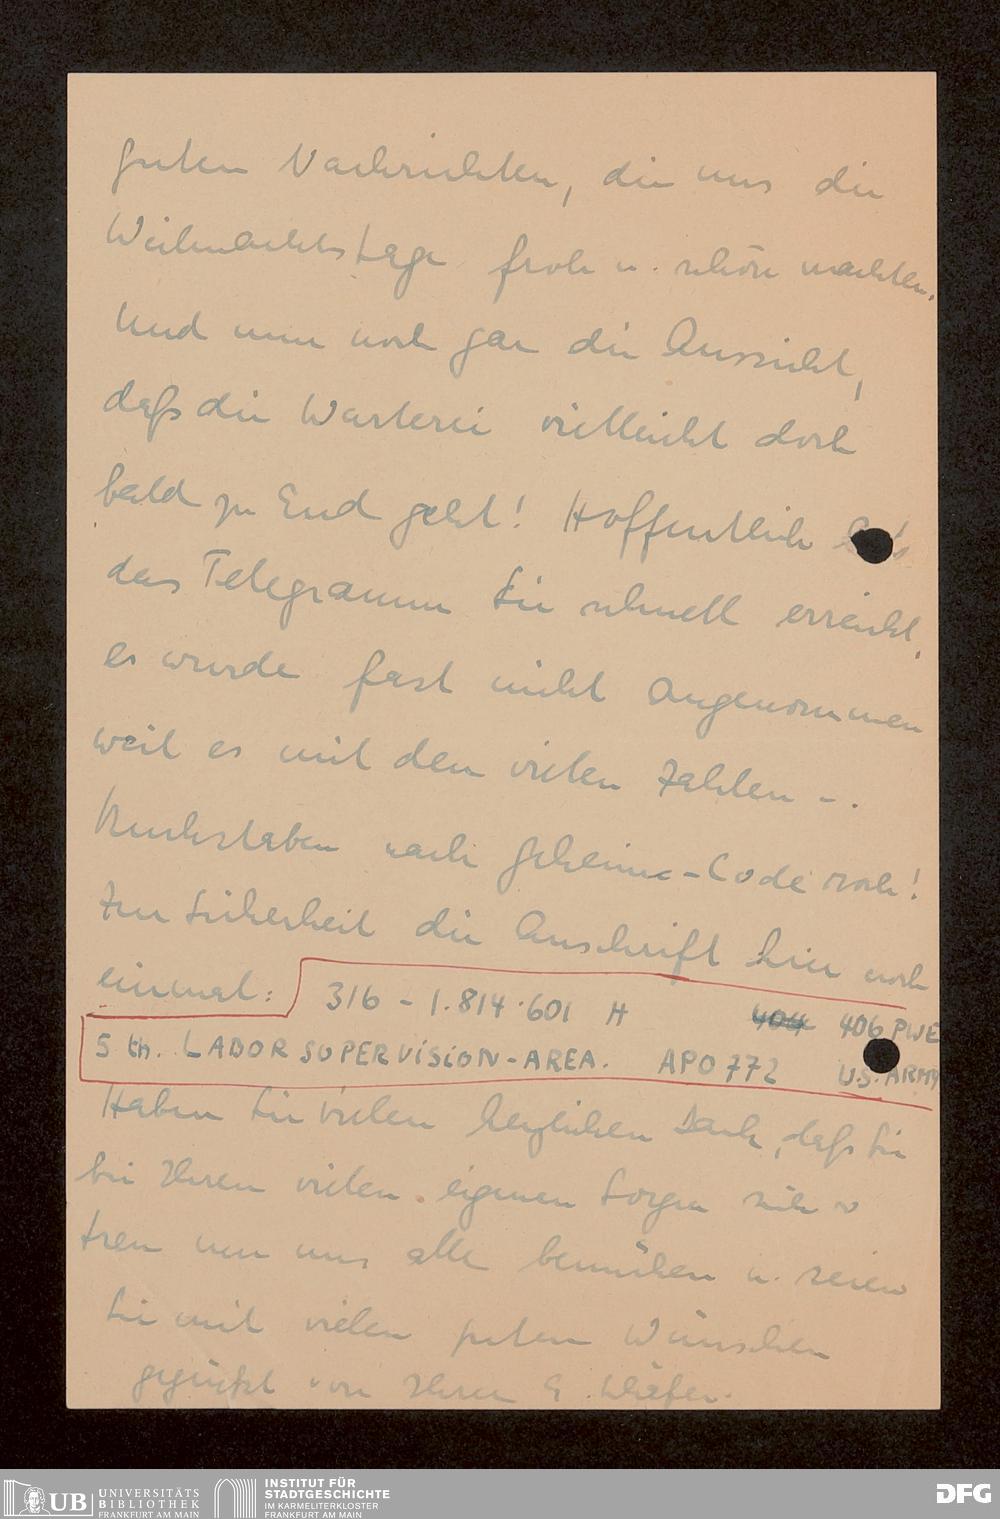 guten Nachrichten, die uns die
Weihnachtstage froh u. schön machten.
Und nun noch gar die Aussicht,
daß die Warterei vielleicht doch
bald zu End geht! Hoffentlich
das Telegramm Sie schnell erreicht,
es wurde fast nicht angenommen
weil es mit den vielen Zahlen -.
Buchstaben nach Geheim-Code roch!
Zur Sicherheit die Anschrift hier noch
einmal: 316 - 1.814.601 H 404 406 PWE
5 th. LABOR SUPERVISION-AREA. APO 772 U.S. ARMY
Haben Sie vielen herzlichen Dank, daß Sie
bei Ihren vielen eigenen Sorgen sich so
treu um uns alle bemühen u. seien
Sie mit vielen guten Wünschen
gegrüßt von Ihrer E.
UB UNIVERSITÄTS
BIBLIOTHEK
FRANKFURT AM MAIN
INSTITUT FÜR
STADTGESCHICHTE
IM KARMELITERKLOSTER
FRANKFURT AM MAIN
DFG